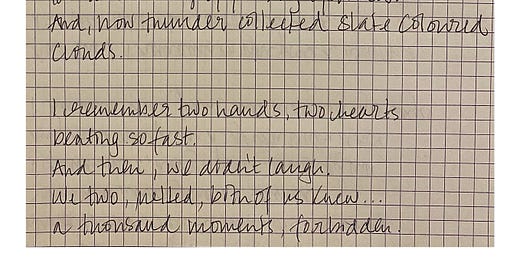 And, how thunder collected slate coloured
clouds.
I remember two hands, two hearts
beating so fast.
And then, we didn't laugh.
We two, melted, both of us knew...
a thousand moments, forbidden.